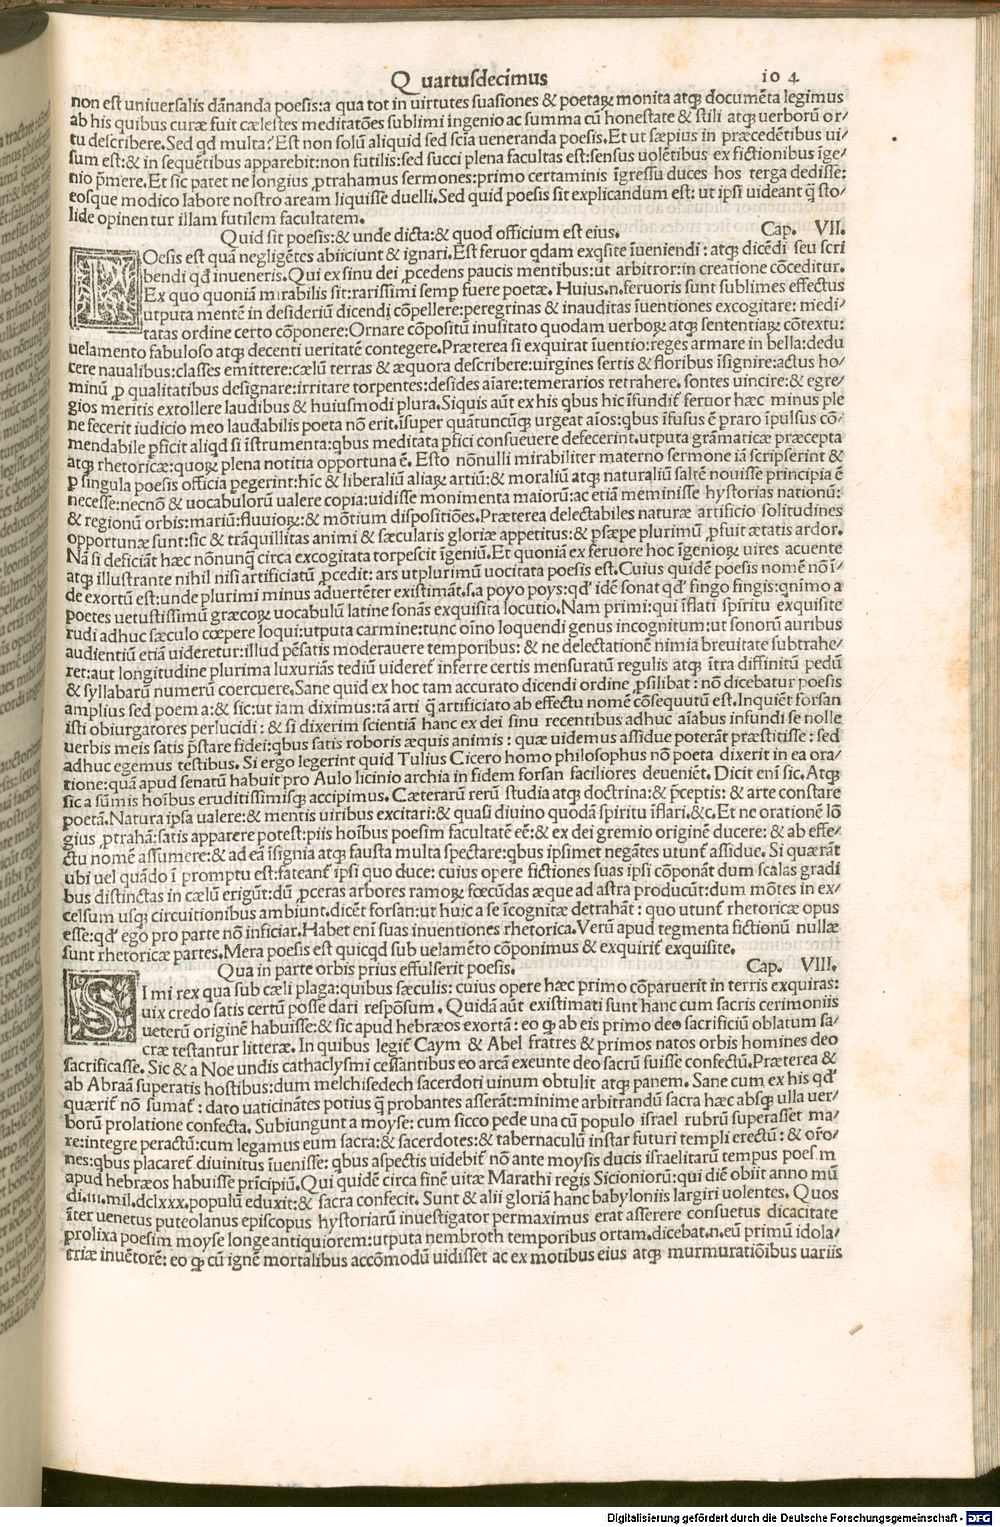 Quartusdecimus 104
non est uniuersalis dānanda poesis:a qua tot in uirtutes suasiones & poetaꝝ monita atqꝫ documēta legimus
ab his quibus curæ fuit cælestes meditatōes sublimi ingenio ac summa cū honestate & stili atqꝫ uerborū or/
tu describere. Sed qd multa? Est non solū aliquid sed scīa ueneranda poesis. Et ut sæpius in præcedētibus ui/
sum est:& in sequētibus apparebit:non futilis:sed succi plena facultas est:sensus uolētibus ex fictionibus īge/
nio p̄mere. Et sic patet ne longius ꝓtrahamus sermones:primo certaminis īgressu duces hos terga dedisse:
eosque modico labore nostro aream liquisse duelli. Sed quid poesis sit explicandum est: ut ipsi uideant q̄ sto/
lide opinentur illam futilem facultatem.
Quid sit poesis:& unde dicta:& quod officium est eius. Cap. VII.
POesis est quā negligētes abiiciunt & ignari. Est feruor qdam exqsite īueniendi : atqꝫ dicēdi seu scri
bendi qd̄ inueneris. Qui ex sinu dei ꝓcedens paucis mentibus:ut arbitror:in creatione cōceditur.
Ex quo quoniā mirabilis sit:rarissimi semp fuere poetæ. Huius.n.feruoris sunt sublimes effectus
utputa mentē in desideriū dicendi cōpellere:peregrinas & inauditas īuentiones excogitare: medi/
tatas ordine certo cōponere:Ornare cōpositū inusitato quodam uerboꝝ atqꝫ sententiaꝝ cōtextu:
uelamento fabuloso atqꝫ decenti ueritatē contegere. Præterea si exquirat īuentio:reges armare in bella:dedu
cere naualibus:classes emittere:cælū terras & æquora describere:uirgines sertis & floribus īsignire:actus ho/
minū ꝓ qualitatibus designare:irritare torpentes:desides aīare:temerarios retrahere. sontes uincire:& egre/
gios meritis extollere laudibus & huiusmodi plura. Siquis aūt ex his qbus hic īfundit̄ feruor hæc minus ple
ne fecerit iudicio meo laudabilis poeta nō erit. īsuper quātuncūqꝫ urgeat aīos:qbus īfusus ē praro īpulsus cō/
mendabile pficit aliqd si īstrumenta:qbus meditata pfici consueuere defecerint. utputa grāmaticæ præcepta
atqꝫ rhetoricæ:quoꝝ plena notitia opportuna ē. Esto nōnulli mirabiliter materno sermone iā scripserint &
ꝑ singula poesis officia pegerint:hīc & liberaliū aliaꝝ artiū:& moraliū atqꝫ naturaliū saltē nouisse principia ē
necesse:necnō & uocabulorū ualere copia:uidisse monimenta maiorū:ac etiā meminisse hystorias nationū:
& regionū orbis:mariū:fluuioꝝ:& mōtium dispositiōes. Præterea delectabiles naturæ artificio solitudines
opportunæ sunt:sic & trāquillitas animi & sæcularis gloriæ appetitus:& psæpe plurimū ꝓfuit ætatis ardor.
Nā si deficiāt hæc nōnunq̄ circa excogitata torpescit īgeniū. Et quoniā ex feruore hoc īgenioꝝ uires acuente
atqꝫ illustrante nihil nisi artificiatū ꝓcedit: ars utplurimū uocitata poesis est. Cuius quidē poesis nomē nō ī/
de exortū est:unde plurimi minus aduertēter existimāt.s.a poyo poys:qd̄ idē sonat qd̄ fingo fingis:qnimo a
poetes uetustissimū græcoꝝ uocabulū latine sonās exquisita locutio. Nam primi:qui īflati spiritu exquisite
rudi adhuc sæculo cœpere loqui:utputa carmine:tunc oīno loquendi genus incognitum:ut sonorū auribus
audientiū etiā uideretur:illud pēsatis moderauere temporibus: & ne delectationē nimia breuitate subtrahe/
ret:aut longitudine plurima luxuriās tediū uideret̄ inferre certis mensuratū regulis atqꝫ ītra diffinitū pedū
& syllabarū numerū coercuere. Sane quid ex hoc tam accurato dicendi ordine ꝓsilibat : nō dicebatur poesis
amplius sed poema:& sic:ut iam diximus:tā arti q̄ artificiato ab effectu nomē cōsequutū est. Inquiēt forsan
isti obiurgatores perlucidi : & si dixerim scientiā hanc ex dei sinu recentibus adhuc aīabus infundi se nolle
uerbis meis satis p̄stare fidei:qbus satis roboris æquis animis : quæ uidemus assidue poterāt præstitisse : sed
adhuc egemus testibus. Si ergo legerint quid Tulius Cicero homo philosophus nō poeta dixerit in ea ora/
tione:quā apud senatū habuit pro Aulo licinio archia in fidem forsan faciliores deueniēt. Dicit enī sic. Atqꝫ
sic a sūmis hoībus eruditissimisqꝫ accipimus. Cæterarū rerū studia atqꝫ doctrina:& p̄ceptis: & arte constare
poetā. Natura ipsa ualere:& mentis uiribus excitari:& quasi diuino quodā spiritu īflari.&c. Et ne orationē lō
gius ꝓtrahā:satis apparere potest:piis hoībus poesim facultatē eē:& ex dei gremio originē ducere: & ab effe/
ctu nomē assumere:& ad eā īsignia atqꝫ fausta multa spectare:qbus ipsimet negātes utunt̄ assidue. Si quærāt
ubi uel quādo ī promptu est:fateant̄ ipsi quo duce: cuius opere fictiones suas ipsi cōponāt dum scalas gradi
bus distinctas in cælū erigūt:dū ꝓceras arbores ramoꝝ fœcūdas æque ad astra producūt:dum mōtes in ex/
celsum usqꝫ circuitionibus ambiunt. dicēt forsan:ut huic a se īcognitæ detrahāt : quo utunt̄ rhetoricæ opus
esse:qd̄ ego pro parte nō inficiar. Habet enī suas inuentiones rhetorica. Verū apud tegmenta fictionū nullæ
sunt rhetoricæ partes. Mera poesis est quicqd sub uelamēto cōponimus & exquirit̄ exquisite.
Qua in parte orbis prius effulserit poesis. Cap. VIII.
SI mi rex qua sub cæli plaga:quibus sæculis: cuius opere hæc primo cōparuerit in terris exquiras:
uix credo satis certū posse dari respōsum. Quidā aūt existimati sunt hanc cum sacris cerimoniis
ueterū originē habuisse:& sic apud hebræos exortā : eo ꝙ ab eis primo deo sacrificiū oblatum sa/
cræ testantur litteræ. In quibus legit̄ Caym & Abel fratres & primos natos orbis homines deo
sacrificasse. Sic & a Noe undis cathaclysmi cessantibus eo arcā exeunte deo sacrū fuisse confectū. Præterea &
ab Abraā superatis hostibus:dum melchisedech sacerdoti uinum obtulit atqꝫ panem. Sane cum ex his qd̄
quærit̄ nō sumat̄ : dato uaticinātes potius q̄ probantes asserāt:minime arbitrandū sacra hæc absqꝫ ulla uer/
borū prolatione confecta. Subiungunt a moyse: cum sicco pede una cū populo israel rubrū superasset ma/
re:integre peractū:cum legamus eum sacra:& sacerdotes:& tabernaculū instar futuri templi erectū : & orō/
nes:qbus placaret̄ diuinitus īuenisse: qbus aspectis uidebit̄ nō ante moysis ducis israelitarū tempus poesim
apud hebræos habuisse prīcipiū. Qui quidē circa finē uitæ Marathi regis Sicioniorū:qui diē obiit anno mū
di.iii.mil.dclxxx.populū eduxit:& sacra confecit. Sunt & alii gloriā hanc babyloniis largiri uolentes. Quos
īter uenetus puteolanus episcopus hystoriarū inuestigator permaximus erat asserere consuetus dicacitate
prolixa poesim moyse longe antiquiorem:utputa nembroth temporibus ortam. dicebat.n.eū primū idola/
triæ inuētorē: eo ꝙ cū ignē mortalibus accōmodū uidisset ac ex motibus eius atqꝫ murmuratiōibus uariis
Digitalisierung gefördert durch die Deutsche Forschungsgemeinschaft - DFG